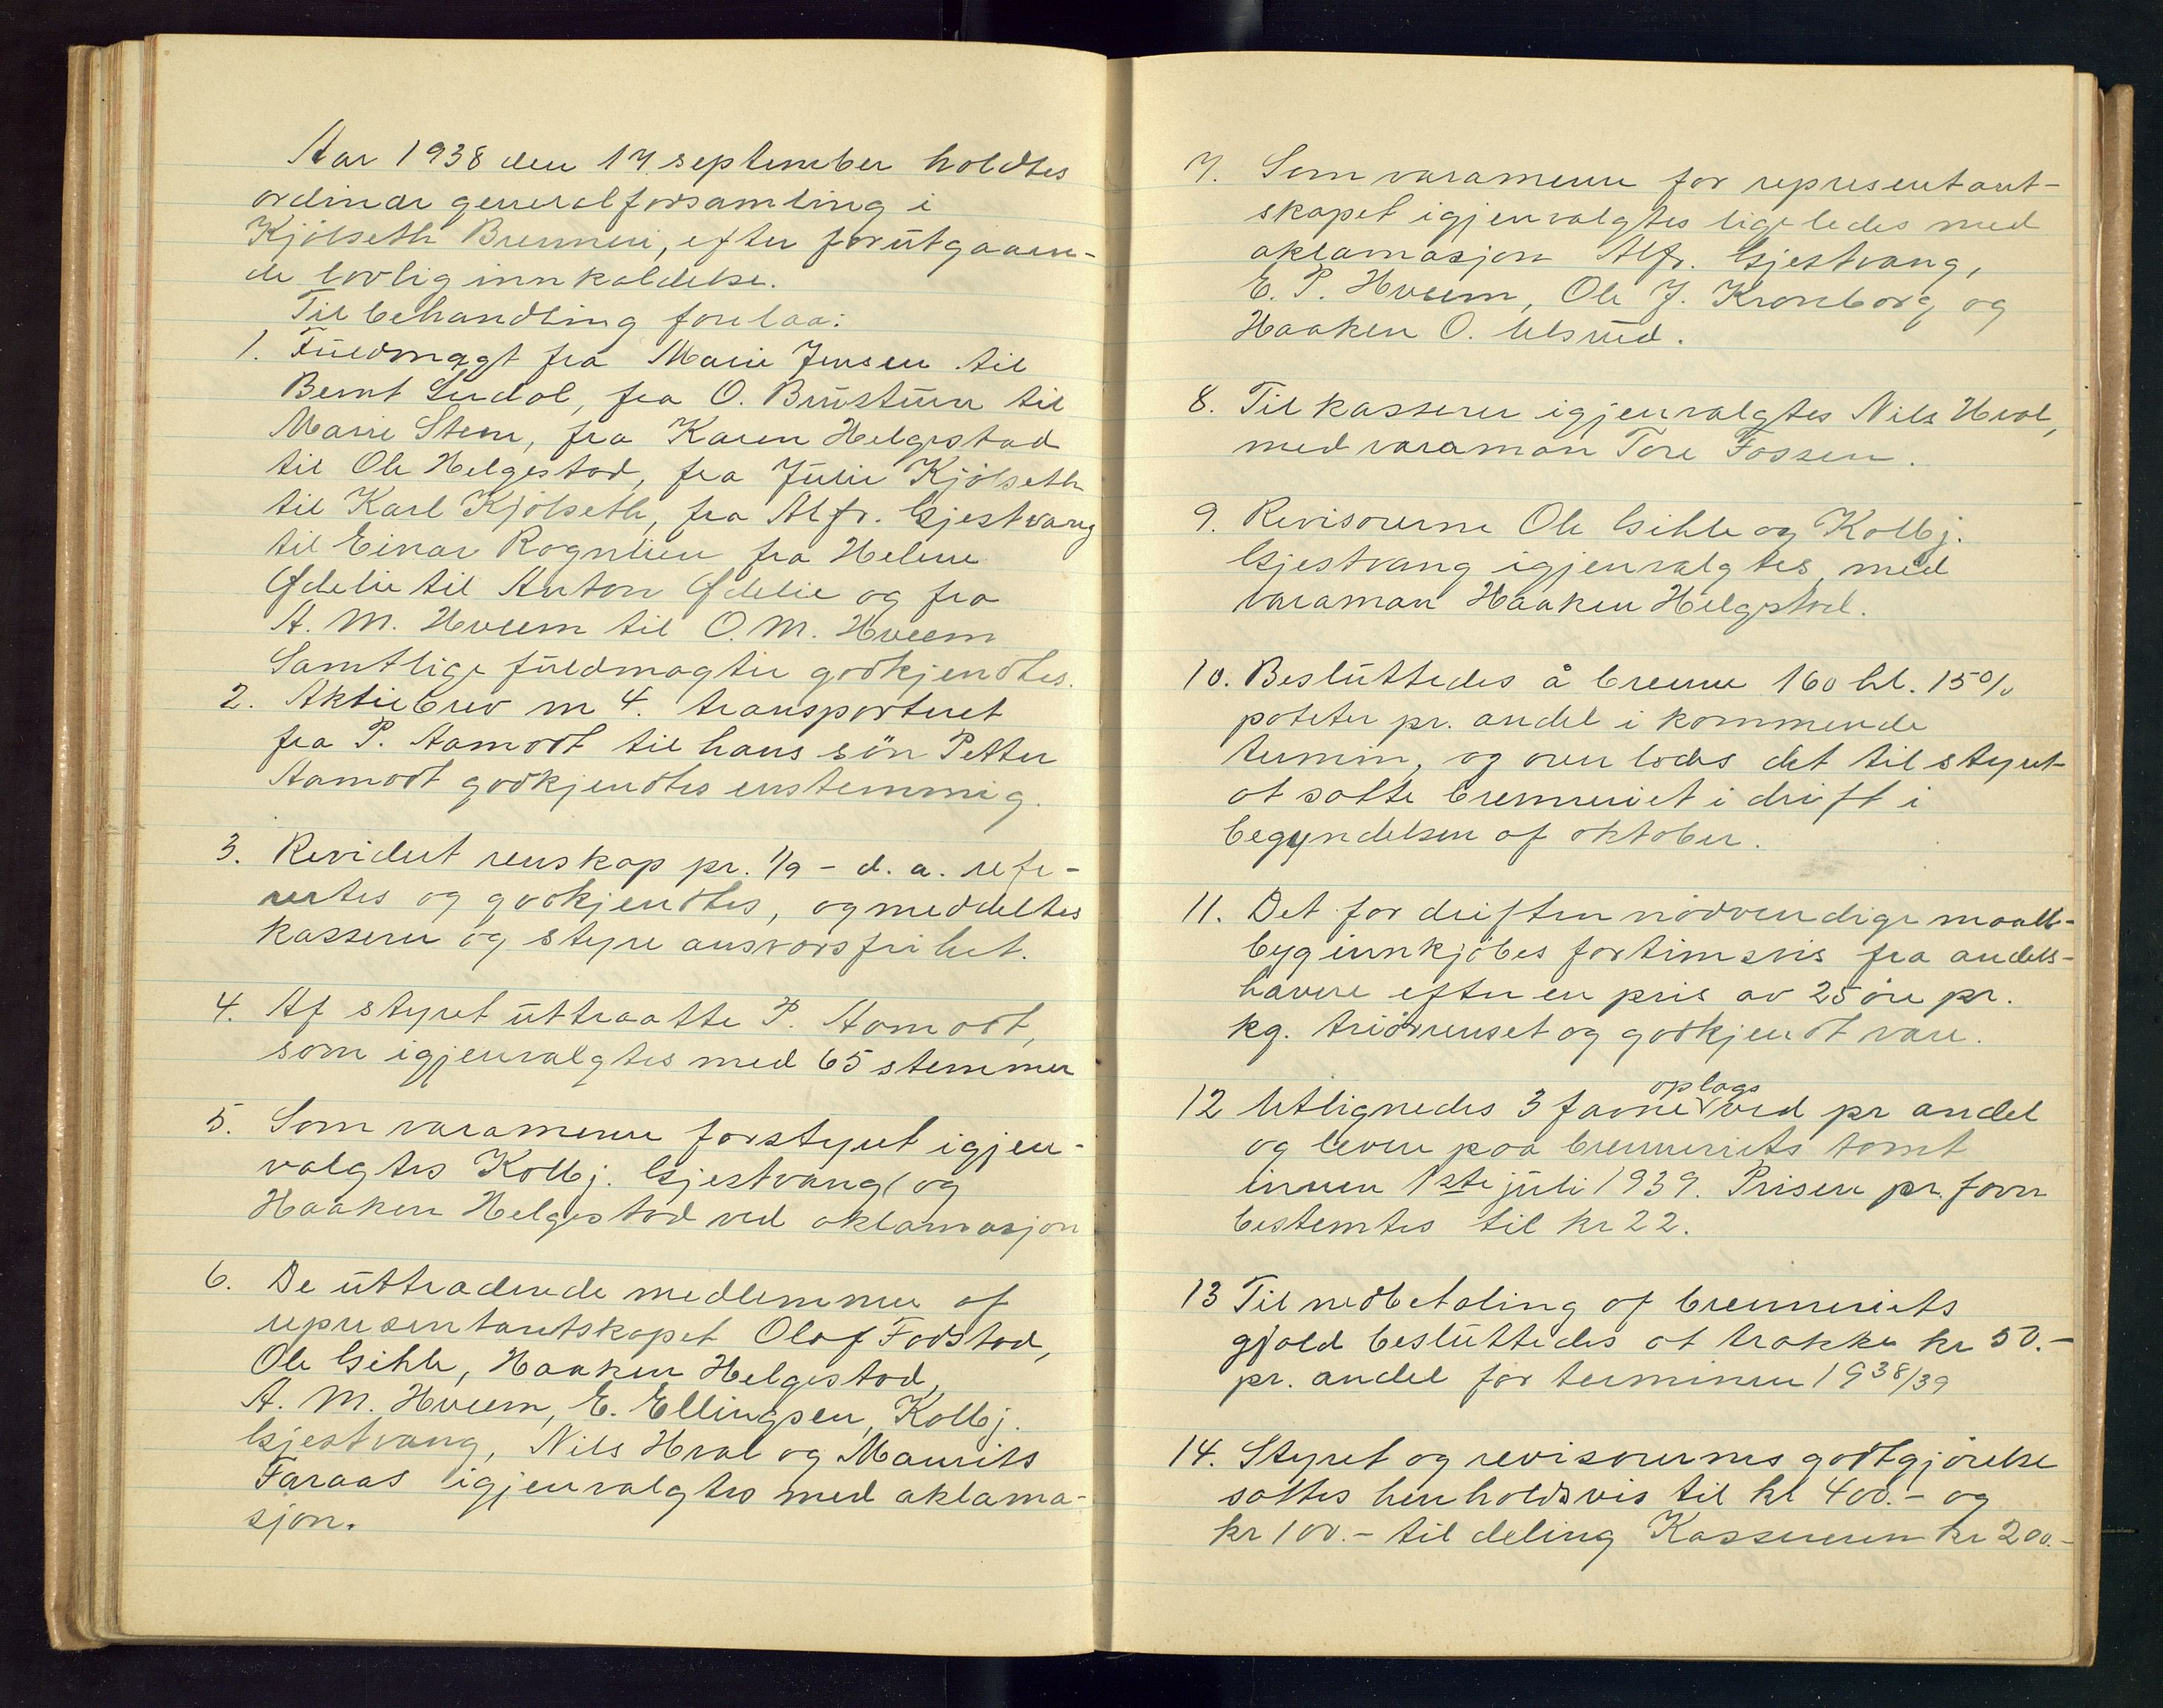 Aar 1938 den 17. september holdtes
ordinær generalforsamling i
Kjölseth Brenneri, efter forutgaaen-
de lovlig innkaldelse.
Til behandling forelaa:
1. Fuldmagt fra Marie Jensen til
Bernt Sudal, fra O. Brustuen til
Marie Steen, fra Karen Helgestad
til Ole Helgestad, fra Julie Kjölseth
til Karl Kjölseth, fra Alfr. Gjestvang
til Einar Rognlien fra Helene
Ødelie til Anton Ødelie og fra
A. M. Hveem til O. M. Hveem
Samtlige fuldmagter godkjendtes.
2. Aktiebrev nr 4. transporteret
fra P. Aamodt til hans sön Petter
Aamodt godkjendtes enstemmig.
3. Revidert renskap pr. 1/9 - d. a. refe-
rertes og godkjendtes, og meddeltes
kasserer og styre ansvarsfrihet.
4. Af styret uttraatte P. Aamodt,
som igjenvalgtes med 65 stemmer
5. Som varamenn for styret igjen-
valgtes Kolbj. Gjestvang og
Haaken Helgestad ved aklamasjon
6. De uttrædende medlemmer af
representantskapet Olaf Fodstad,
Ole Gihle, Haaken Helgestad,
A. M. Hveem, E. Ellingsen, Kolbj.
Gjestvang, Nils Hval og Maurits
Faraas igjenvalgtes med aklama-
sjon.
7. Som varamenn for representant-
skapet igjenvalgtes ligeledes med
aklamasjon Alfr. Gjestvang,
E. P. Hveem, Ole J. Kronborg og
Haaken O. Ulsrud.
8. Til kasserer igjenvalgtes Nils Hval,
med varaman Tore Fossen.
9. Revisorerne Ole Gihle og Kolbj.
Gjestvang igjenvalgtes, med
varaman Haaken Helgestad.
10. Besluttedes å brenne 160 hl. 15%
poteter pr. andel i kommende
termin, og overlodes det til styret
at sætte brenneriet i drift i
begyndelsen af oktober.
11. Det for driften nödvendige maalt-
byg innkjöbes fortinsvis fra andels-
havere efter en pris av 25 öre pr.
kg. triörrenset og godkjendt vare.
12 Utlignedes 3 favne oplags ved pr andel
og levere paa brenneriets tomt
innen 1ste juli 1939. Prisen pr. favn
bestemtes til kr 22.
13 Til nedbetaling af brenneriets
gjæld besluttedes at trække kr 50.-
pr. andel for terminen 1938/39
14. Styret og revisorernes godtgjörelse
sattes henholdsvis til kr 400.- og
kr 100.- til deling Kassereren kr 200.-